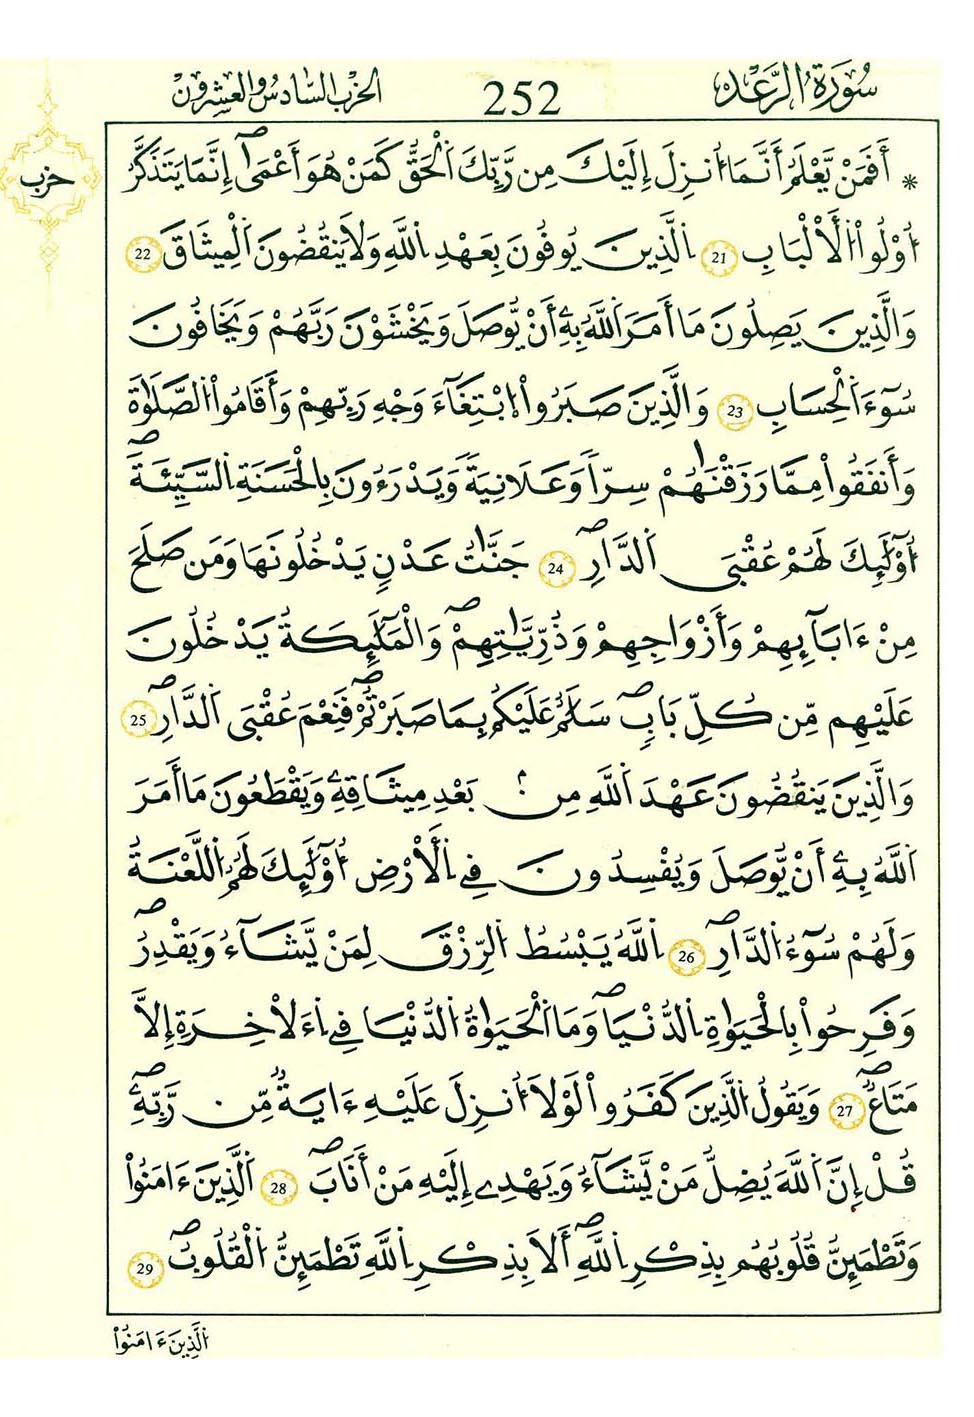 سُورَةُ الرَّعْدِ 252 الحزب السادس والعشرون
حزب
* أَفَمَنْ يَّعْلَمُ أَنَّمَا أُنزِلَ إِلَيْكَ مِن رَّبِّكَ اَ۬لْحَقُّ كَمَنْ هُوَ أَعْم۪ىٰٓ إِنَّمَا يَتَذَكَّرُ
أُوْلُواْ اُ۬لْأَلْبَٰبِ 21 اِ۬لذِينَ يُوفُونَ بِعَهْدِ اِ۬للَّهِ وَلَا يَنقُضُونَ اَ۬لْمِيثَٰقَ 22
وَالذِينَ يَصِلُونَ مَا أَمَرَ اَ۬للَّهُ بِهِۦٓ أَنْ يُّوصَلَ وَيَخْشَوْنَ رَبَّهُمْ وَيَخَافُونَ
سُوٓءَ اَ۬لْحِسَابِ 23 وَالذِينَ صَبَرُواْ اُ۪بْتِغَآءَ وَجْهِ رَبِّهِمْ وَأَقَامُواْ اُ۬لصَّلَوٰةَ
وَأَنفَقُواْ مِمَّا رَزَقْنَٰهُمْ سِرّاً وَعَلَانِيَةً وَيَدْرَءُونَ بِالْحَسَنَةِ اِ۬لسَّيِّئَةَ
أُوْلَٰٓئِكَ لَهُمْ عُقْبَى اَ۬لدّ۪ارِ 24 جَنَّٰتُ عَدْنٍ يَدْخُلُونَهَا وَمَن صَلَحَ
مِنْ ءَابَآئِهِمْ وَأَزْوَاجِهِمْ وَذُرِّيَّٰتِهِمْ وَالْمَلَٰٓئِكَةُ يَدْخُلُونَ
عَلَيْهِم مِّن كُلِّ بَابٍ سَلَٰمٌ عَلَيْكُم بِمَا صَبَرْتُمْ فَنِعْمَ عُقْبَى اَ۬لدّ۪ارِ 25
وَالذِينَ يَنقُضُونَ عَهْدَ اَ۬للَّهِ مِنۢ بَعْدِ مِيثَٰقِهِۦ وَيَقْطَعُونَ مَا أَمَرَ
اَ۬للَّهُ بِهِۦٓ أَنْ يُّوصَلَ وَيُفْسِدُونَ فِي اِ۬لْأَرْضِ أُوْلَٰٓئِكَ لَهُمُ اُ۬للَّعْنَةُ
وَلَهُمْ سُوٓءُ اُ۬لدّ۪ارِ 26 اِ۬للَّهُ يَبْسُطُ اُ۬لرِّزْقَ لِمَنْ يَّشَآءُ وَيَقْدِرُ
وَفَرِحُواْ بِالْحَيَوٰةِ اِ۬لدُّنْيَا وَمَا اَ۬لْحَيَوٰةُ اُ۬لدُّنْيَا فِي اِ۬ءَلَاخِرَةِ إِلَّا
مَتَٰعٌ 27 وَيَقُولُ اُ۬لذِينَ كَفَرُواْ لَوْلَا أُنزِلَ عَلَيْهِ ءَايَةٌ مِّن رَّبِّهِۦ
قُلْ إِنَّ اَ۬للَّهَ يُضِلُّ مَنْ يَّشَآءُ وَيَهْدِي إِلَيْهِ مَنْ أَنَابَ 28 اَ۬لذِينَ ءَامَنُواْ
وَتَطْمَئِنُّ قُلُوبُهُم بِذِكْرِ اِ۬للَّهِ أَلَا بِذِكْرِ اِ۬للَّهِ تَطْمَئِنُّ اُ۬لْقُلُوبُ 29
اَ۬لذِينَ ءَامَنُواْ